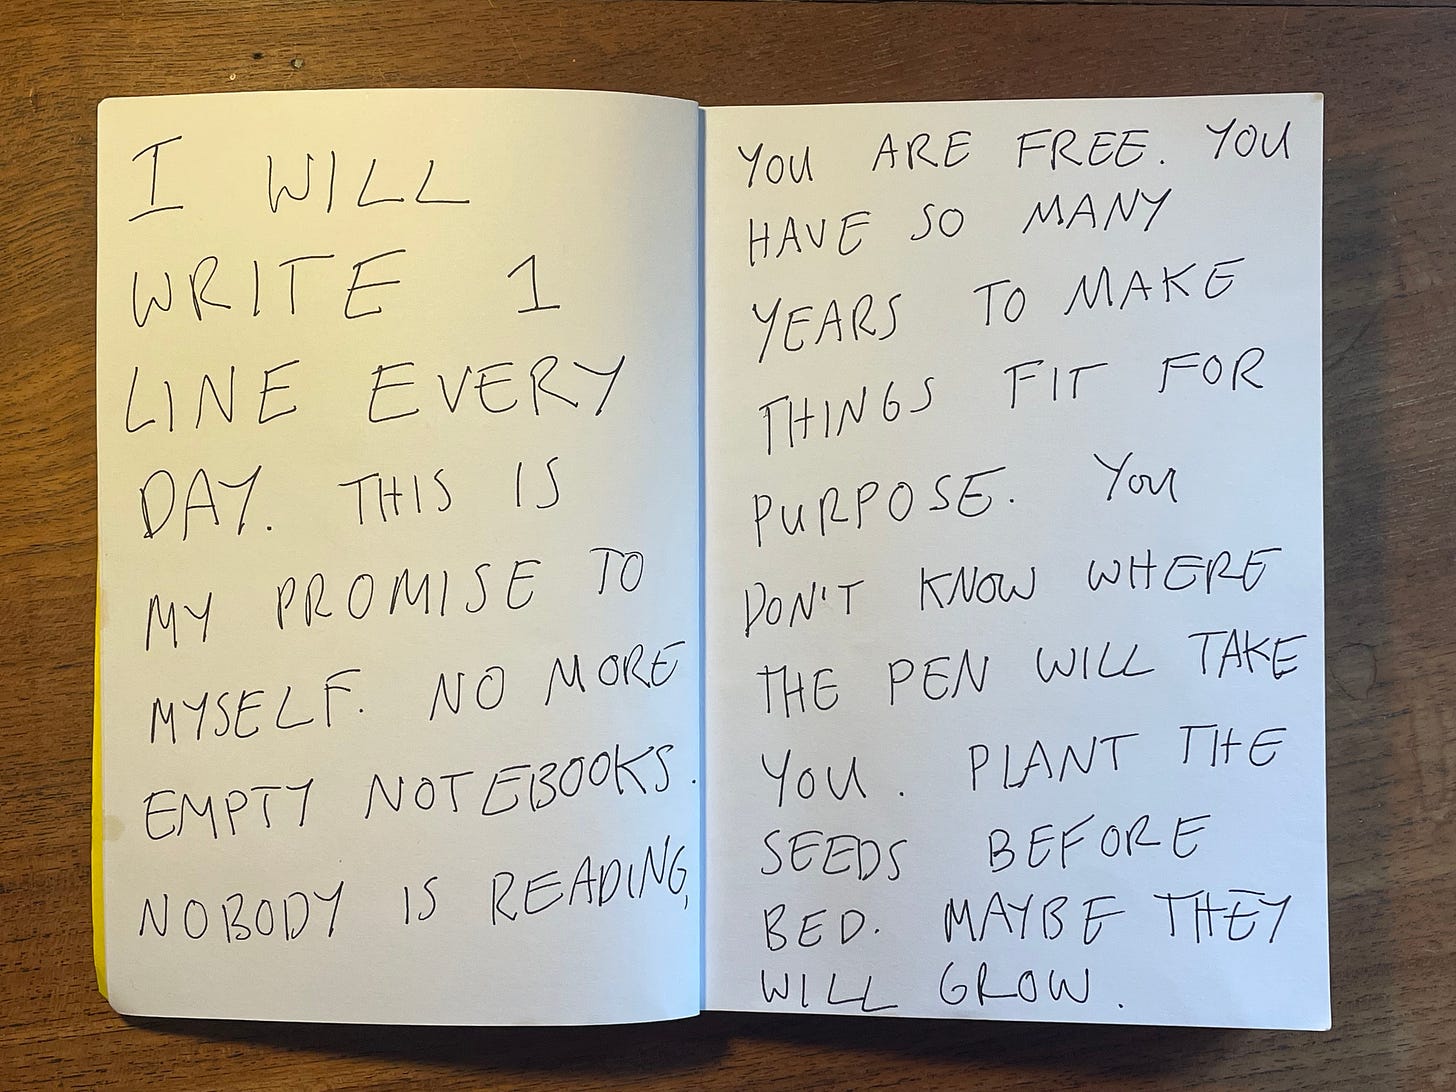 I WILL
WRITE 1
LINE EVERY
DAY. THIS IS
MY PROMISE TO
MYSELF. NO MORE
EMPTY NOTEBOOKS.
NOBODY IS READING,
YOU ARE FREE. YOU
HAVE SO MANY
YEARS TO MAKE
THINGS FIT FOR
PURPOSE. YOU
DON'T KNOW WHERE
THE PEN WILL TAKE
YOU. PLANT THE
SEEDS BEFORE
BED. MAYBE THEY
WILL GROW.